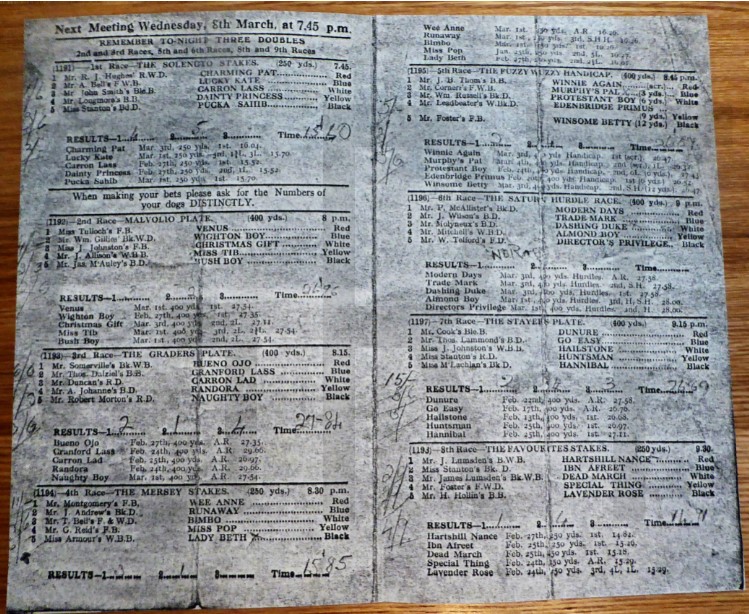 Next Meeting Wednesday, 8th March, at 7.45 p.m.
REMEMBER TO-NIGHT THREE DOUBLES
2nd and 3rd Races, 5th and 6th Races, 8th and 9th Races
(1191)—1st Race—THE SOLENOTO STAKES. (250 yds.) 7.45.
1 Mr. R. J. Hughes' R.W.D. CHARMING PAT Red
2 Mr. A. Bell's F.W.B. LUCKY KATE Blue
3 Mr. John Smith's Ble.B. CARRON LASS White
4 Mr. Longmore's B.B. DAINTY PRINCESS Yellow
5 Miss Stanton's Bd.D. PUCKA SAHIB Black
RESULTS—1 Time 15.60
Charming Pat Mar. 3rd, 250 yds. 1st. 16.04.
Lucky Kate Mar. 1st, 250 yds. 15.70.
Carron Lass Feb. 27th, 250 yds. 1st. 15.52.
Dainty Princess Feb. 27th, 250 yds. 2nd, 1L. 15.52.
Pucka Sahib Mar. 1st, 250 yds. 1st. 15.70.
When making your bets please ask for the Numbers
of your dogs DISTINCTLY.
(1192)—2nd Race—MALVOLIO PLATE. (400 yds.) 8 p.m.
1 Miss Tulloch's F.B. VENUS Red
2 Mr. Wm. Gillins' Bk.W.D. WIGHTON BOY Blue
3 Miss J. Johnston's F.B. CHRISTMAS GIFT White
4 Mr. J. Allison's W.B.B. MISS TIB Yellow
5 Mr. Jas. McAuley's B.D. BUSH BOY Black
RESULTS—1 2 3 Time
Venus Mar. 1st, 400 yds. 1st. 27.54.
Wighton Boy Feb. 27th, 400 yds. 1st. 27.35.
Christmas Gift Mar. 3rd, 400 yds. 2nd, 2L.
Miss Tib Mar. 1st, 400 yds. 3rd, 2L. 27.54.
Bush Boy Mar. 1st, 400 yds. 2nd, 2L.
(1193)—3rd Race—THE GRADERS PLATE. (400 yds.) 8.15.
1 Mr. Somerville's Bk.W.D. BUENO OJO Red
2 Mr. Thos. Dalziel's B.B. CRANFORD LASS Blue
3 Mr. Duncan's R.D. CARRON LAD White
4 Mr. A. Johanne's B.D. RANDORA Yellow
5 Mr. Robert Morton's R.D. NAUGHTY BOY Black
RESULTS—1 2 3 Time
Bueno Ojo Feb. 27th, 400 yds. A.R. 27.35.
Cranford Lass Feb. 24th, 400 yds. A.R. 29.06.
Carron Lad Feb. 25th, 400 yds. A.R. 26.97.
Randora Feb. 24th, 400 yds. A.R. 29.06.
Naughty Boy Mar. 1st, 400 yds. A.R. 27.54.
(1194)—4th Race—THE MERSEY STAKES. (250 yds.) 8.30 p.m.
1 Mr. Montgomery's F.B. WEE ANNE Red
2 Mr. J. Andrew's Bk.D. RUNAWAY Blue
3 Mr. T. Bell's F. & W.D. BIMBO White
4 Mr. G. Reid's F.B. MISS POP Yellow
5 Miss Armour's W.B.B. LADY BETH Black
RESULTS—1 2 3 Time 15.85
Wee Anne Mar. 1st, 250 yds. A.R.
Runaway Mar. 1st, 250 yds. 3rd, S.H.
Bimbo 1st.
Miss Pop
Lady Beth Feb. 27th, 250 yds. 2nd
(1195)—5th Race—THE FUZZY WUZZY HANDICAP. (400 yds.) 8.45 p.m.
1 Mr. J. B. Thom's B.B. WINNIE AGAIN (scr.) Red
2 Mr. Corner's F.W.B. MURPHY'S PAT (3 yds.) Blue
3 Mr. Wm. Russell's Bk.D. PROTESTANT BOY (6 yds.) White
4 Mr. Leadbeater's W.Bk.D. EDENBRIDGE PRIMUS (9 yds.) Yellow
5 Mr. Foster's F.B. WINSOME BETTY (12 yds.) Black
RESULTS—1 2 3 Time
Winnie Again Mar. 3rd, 400 yds Handicap. 1st (scr).
Murphy's Pat 400 yds Handicap. 2nd
Protestant Boy Feb. 24th, 400 yds Handicap. 2nd
Edenbridge Primus Feb. 400 yds Handicap.
Winsome Betty Mar. 3rd, 400 yds Handicap. 2nd, S.H.
(1196)—6th Race—THE SATURN HURDLE RACE. (400 yds.) 9 p.m.
1 Mr. P. McAllister's Bk.D. MODERN DAYS Red
2 Mr. J. Wilson's B.D. TRADE MARK Blue
3 Mr. Molyneux's B.D. DASHING DUKE White
4 Mr. Mitchell's W.B.D. ALMOND BOY Yellow
5 Mr. W. Tolford's F.D. DIRECTOR'S PRIVILEGE. Black
No Race
RESULTS—1 2 3 Time
Modern Days Mar. 3rd, 400 yds, Hurdles. A.R. 27.58.
Trade Mark Mar. 3rd, 400 yds, Hurdles. 2nd, S.H. 27.58.
Dashing Duke Mar. 3rd, 400 yds, Hurdles. 1st. 27.58.
Almond Boy Mar. 1st, 400 yds, Hurdles. 3rd, H. 28.00.
Directors Privilege Mar. 1st, 400 yds, Hurdles. 2nd, H. 28.00.
(1197)—7th Race—THE STAYERS PLATE. (400 yds.) 9.15 p.m.
1 Mr. Cook's Ble.B. DUNURE Red
2 Mr. Thos. Lammond's B.D. GO EASY Blue
3 Miss J. Johnston's W.B.B. HAILSTONE White
4 Miss Stanton's R.D. HUNTSMAN Yellow
5 Miss M'Lachlan's Bk.D. HANNIBAL Black
RESULTS—1 2 3 Time
Dunure Feb. 22nd, 400 yds. A.R. 27.58.
Go Easy Feb. 17th, 400 yds. A.R. 26.76.
Hailstone Feb. 13th, 400 yds. 1st. 26.68.
Huntsman Feb. 25th, 400 yds. 1st. 26.97.
Hannibal Feb. 25th, 400 yds. 1st. 27.11.
(1198)—8th Race—THE FAVOURITES STAKES. (250 yds.) 9.30
1 Mr. J. Lumsden's B.W.B. HARTSHILL NANCE Red
2 Miss Stanton's Bk. D. IBN AFREET Blue
3 Mr. James Lumsden's Bk.W.B. DEAD MARCH White
4 Mr. Foster's F.W.D. SPECIAL THING Yellow
5 Mr. H. Hallin's B.B. LAVENDER ROSE Black
RESULTS—1 2 3 Time
Hartshill Nance Feb. 27th, 250 yds. 1st. 14.82.
Ibn Afreet Feb. 25th, 250 yds. 1st. 15.29.
Dead March Feb. 25th, 250 yds. 1st. 15.18.
Special Thing Feb. 24th, 250 yds. A.R. 15.29.
Lavender Rose Feb. 24th, 250 yds. 3rd, 4L, 1L. 15.29.